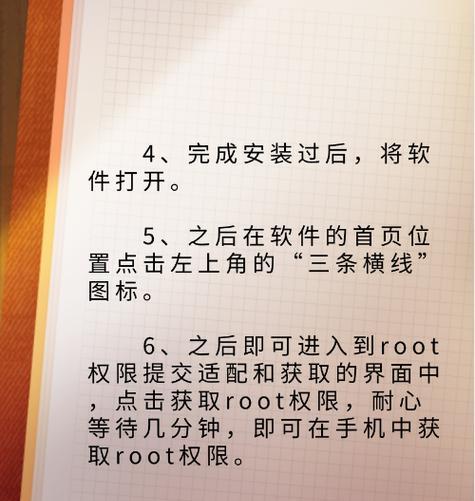 4、完成安装过后，将软
件打开。
5、之后在软件的首页位
置点击左上角的“三条横线”
图标。
6、之后即可进入到root
权限提交适配和获取的界面中
，点击获取root权限，耐心
等待几分钟，即可在手机中获
取root权限。